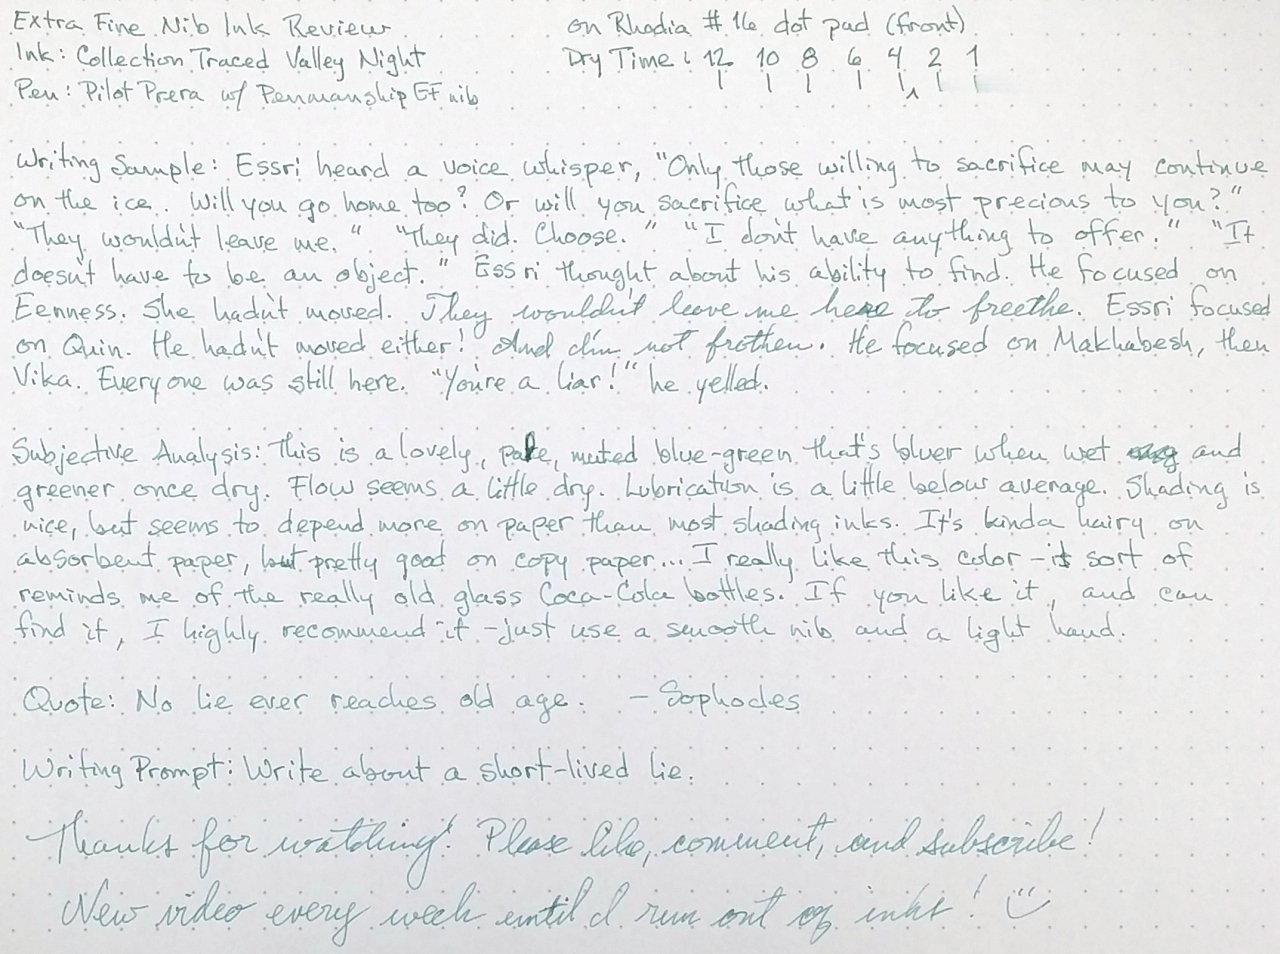 Extra Fine Nib Ink Review
on Rhodia #16 dot pad (front)
Ink: Collection Traced Valley Night
Dry Time: 12 10 8 6 4 2 1
Pen: Pilot Prera w/ Penmanship EF nib
Writing Sample: Essri heard a voice whisper, "Only those willing to sacrifice may continue
on the ice. Will you go home too? Or will you sacrifice what is most precious to you?"
"They wouldn't leave me." "They did. Choose." "I don't have anything to offer." "It
doesn't have to be an object." Essri thought about his ability to find. He focused on
Eenness. She hadn't moved. They wouldn't leave me here to freethe. Essri focused
on Quin. He hadn't moved either! And I'm not frothen. He focused on Makhabesh, then
Vika. Everyone was still here. "You're a liar!" he yelled.
Subjective Analysis: This is a lovely, pale, muted blue-green that's bluer when wet and
greener once dry. Flow seems a little dry. Lubrication is a little below average. Shading is
nice, but seems to depend more on paper than most shading inks. It's kinda hairy on
absorbent paper, but pretty good on copy paper... I really like this color - it sort of
reminds me of the really old glass Coca-Cola bottles. If you like it, and can
find it, I highly recommend it - just use a smooth nib and a light hand.
Quote: No lie ever reaches old age. - Sophocles
Writing Prompt: Write about a short-lived lie.
Thanks for watching! Please like, comment, and subscribe!
New video every week until I run out of inks! :)